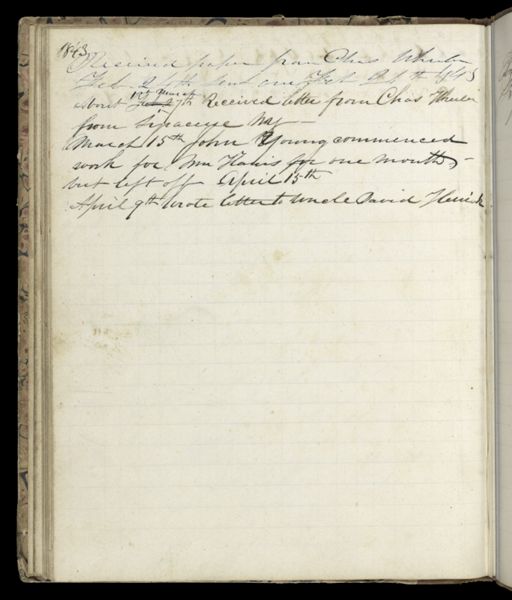 1843
Received paper from Chas Wheeler
Feb 24th sent one Feb 27th 1843
About 1st March 27th Received letter from Chas Wheeler
from Syracuse NY
March 15th John Young commenced
work for Wm for one month,
but left off April 15th
April 9th Wrote letter to Uncle David